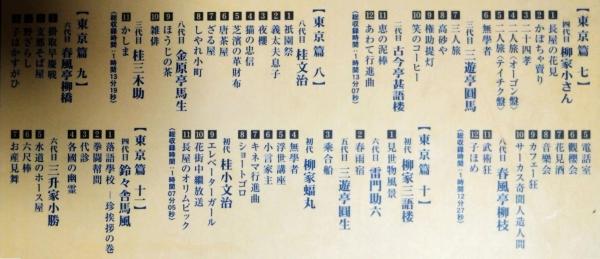 【東京篇 七】
四代目 柳家小さん
1 長屋の花見
2 かぼちゃ賣り
3 二十四孝
4 二人旅（オーゴン盤）
5 二人旅（テイチク盤）
6 無學者
三代目 三遊亭圓馬
7 三人旅
8 高砂や
9 權助提灯
10 笑のコーヒー
古今亭甚語楼
11 恵の泥棒
12 あわて行進曲
〈総収録時間・1時間13分07秒〉
【東京篇 八】
八代目 桂文治
1 祇園祭
2 義太夫息子
3 夜櫻
4 猫の忠信
5 芝濱の革財布
6 唐茶屋
7 ざる屋
8 しやれ小町
八代目 金原亭馬生
9 ほうじの茶
10 雑俳
三代目 桂三木助
11 かしま
〈総収録時間・1時間13分19秒〉
【東京篇 九】
六代目 春風亭柳橋
1 掛取早慶戦
2 支那そば屋
3 野ざらし
4 子はかすがひ
5 電話室
6 觀櫻會
7 花見
8 音樂會
9 カフェー狂
10 サーカス奇聞人造人間
八代目 春風亭柳枝
11 武術狂
12 子ほめ
〈総収録時間・1時間12分27秒〉
【東京篇 十一】
初代 柳家三語楼
1 見世物風景
六代目 雷門助六
2 春雨宿
五代目 三遊亭圓生
3 乘合船
初代 柳家蝠丸
4 無學者
5 浮世講座
6 小言家主
7 キネマ行進曲
8 ショートゴロ
初代 桂小文治
9 エレベーターガール
10 花街中繼放送
11 長屋のオリムピック
〈総収録時間・1時間07分05秒〉
【東京篇 十二】
四代目 鈴々舎馬風
1 落語學校―珍挨拶の巻
2 拳鬪幇間
3 代診
4 各國の幽霊
六代目 三升家小勝
5 水道のホース屋
6 六尺棒
7 お産見舞